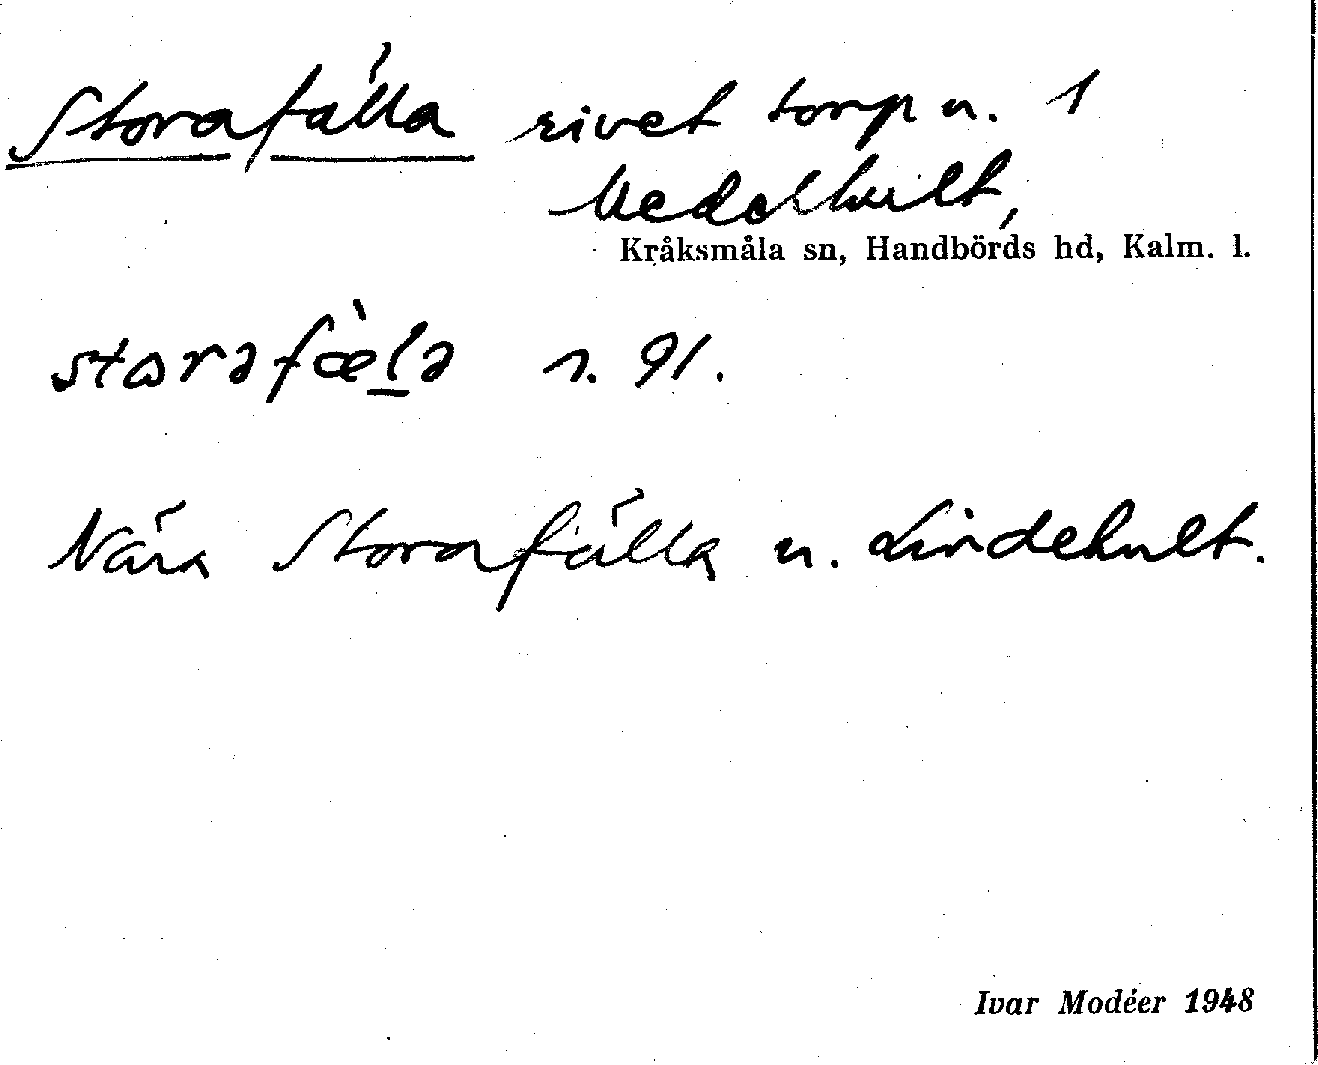 Storafälla rivet torp u. 1
Medelhult,
Kråksmåla sn, Handbörds hd, Kalm. l.
storəfæ̀lə s. 91.
Nära Storafälla u. Lindehult.
Ivar Modéer 1948